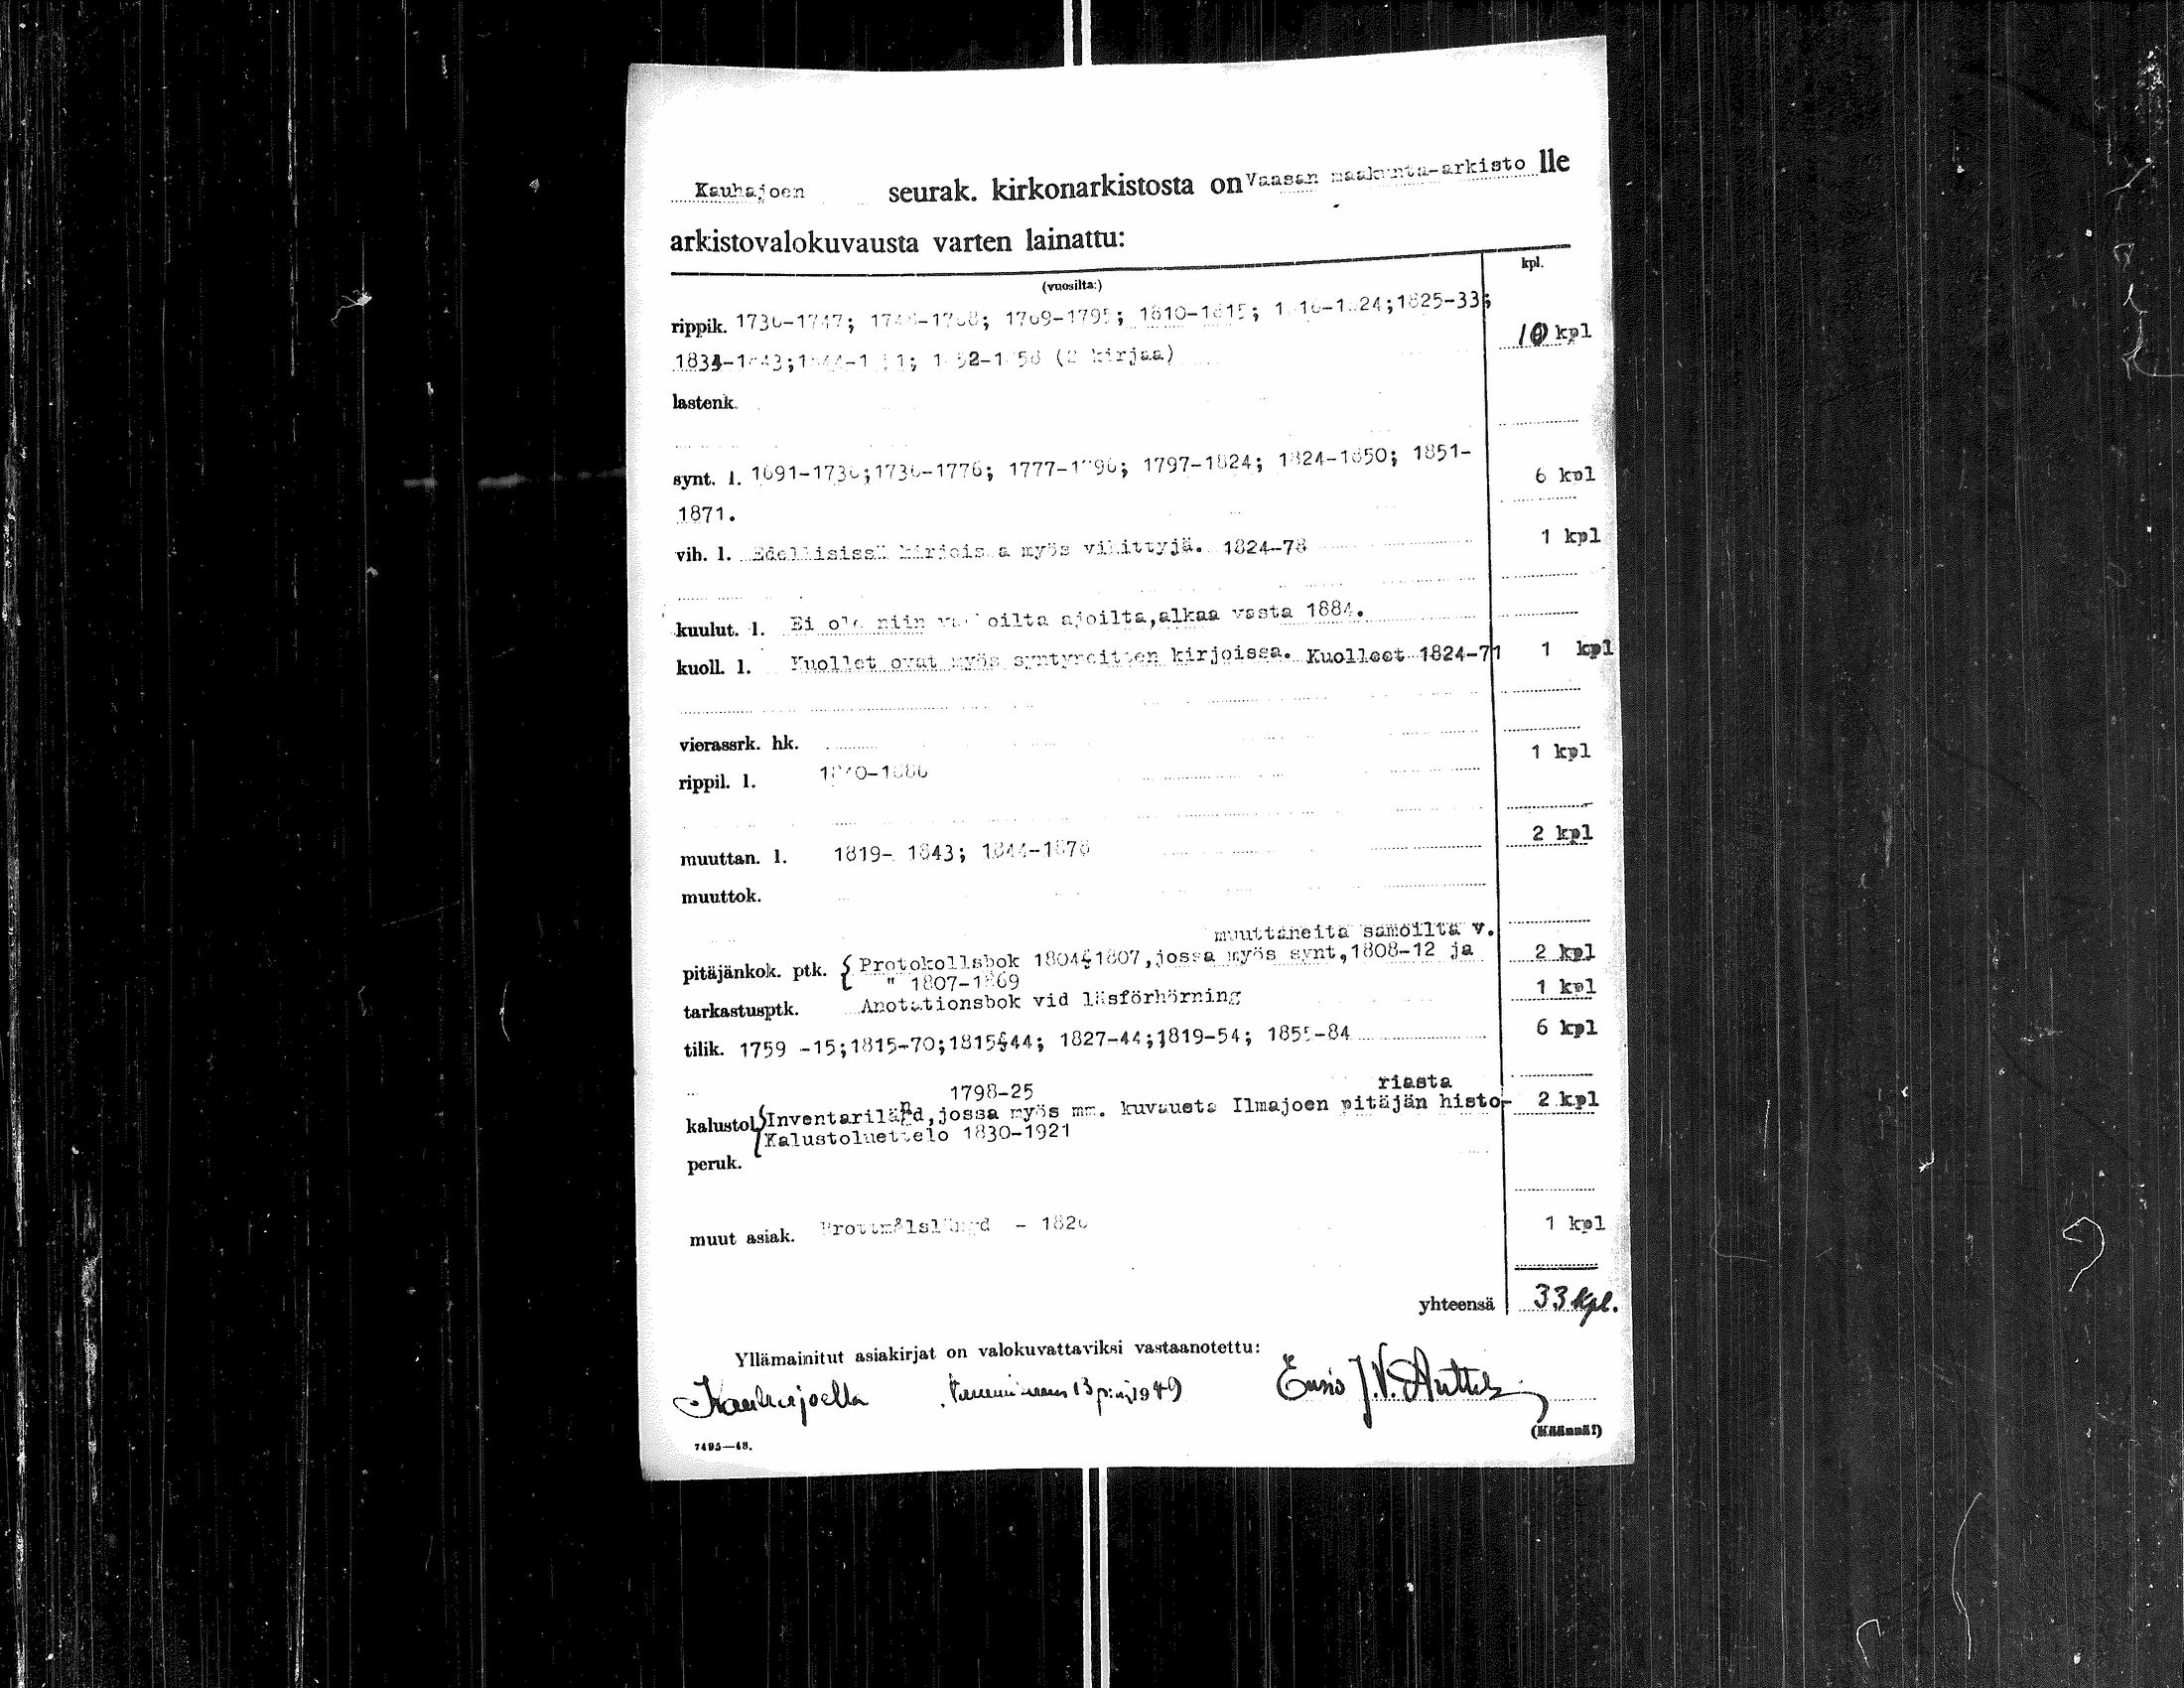 Kauhajoen seurak. kirkonarkistosta on Vaasan maakunta-arkisto lle
arkistovalokuvausta varten lainattu:
kpl.
(vuosilta:)
rippik. 1736-1747; 1748-1768; 1769-1795; 1810-1815; 1816-1824; 1825-33;
10 kpl
1834-1843; 1844-1851; 1852-1858 (2 kirjaa)
lastenk.
synt. l. 1691-1736; 1736-1776; 1777-1796; 1797-1824; 1824-1850; 1851-
6 kpl
1871.
vih. l. Edellisissä kirjoissa myös vihittyjä. 1824-78 1 kpl
kuulut. l. Ei ole niin vanhoilta ajoilta, alkaa vasta 1884.
kuoll. l. Kuollet ovat myös syntyneitten kirjoissa. Kuolleet 1824-71 1 kpl
vierassrk. hk.
1 kpl
rippil. l. 1840-1886
2 kpl
muuttan. l. 1819- 1843; 1844-1878
muuttok.
muuttaneita samoilta v.
pitäjänkok. ptk. { Protokollsbok 1804-1807, jossa myös synt, 1808-12 ja 2 kpl
" 1807-1869
tarkastusptk. Anotationsbok vid läsförhörning 1 kpl
tilik. 1759 -15; 1815-70; 1815-44; 1827-44; 1819-54; 1855-84 6 kpl
1798-25 riasta
kalustol. { Inventariländ, jossa myös mm. kuvausta Ilmajoen pitäjän histo- 2 kpl
Kalustoluettelo 1830-1921
peruk.
muut asiak. - 1826 1 kpl
yhteensä 33 kpl.
Yllämainitut asiakirjat on valokuvattaviksi vastaanotettu:
Kauhajoella 13 p:nä 1949
7495—48.
(Käännä!)